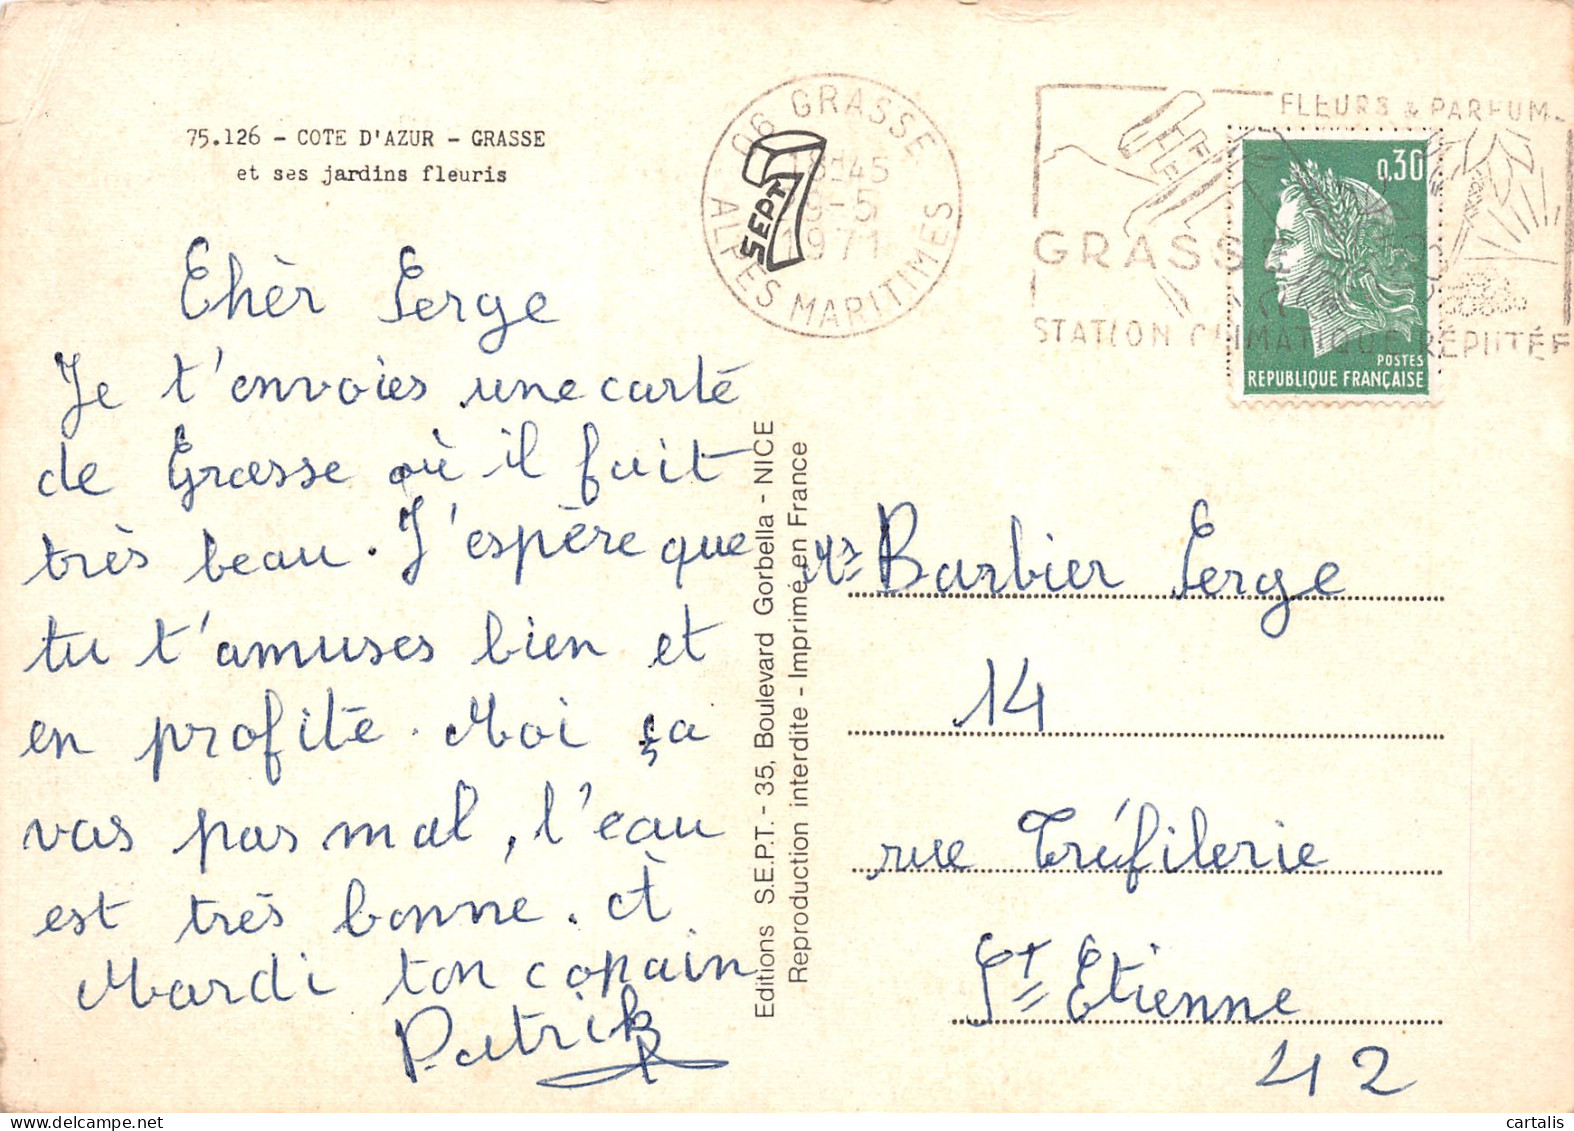 75.126 - COTE D'AZUR - GRASSE
et ses jardins fleuris
06 GRASSE
18H45
9-5
1971
ALPES MARITIMES
SEPT
FLEURS & PARFUMS
GRASSE
STATION CLIMATIQUE RÉPUTÉE
0,30
POSTES
REPUBLIQUE FRANÇAISE
Chèr Serge
Je t'envoies une carte
de Grasse où il fait
très beau. J'espère que
tu t'amuses bien et
en profite. Moi ça
vas pas mal, l'eau
est très bonne. À
Mardi ton copain
Patrik
Editions S.E.P.T. - 35, Boulevard Gorbella - NICE
Reproduction interdite - Imprimé en France
Mr Barbier Serge
14
rue Tréfilerie
St Etienne
42
cartalis